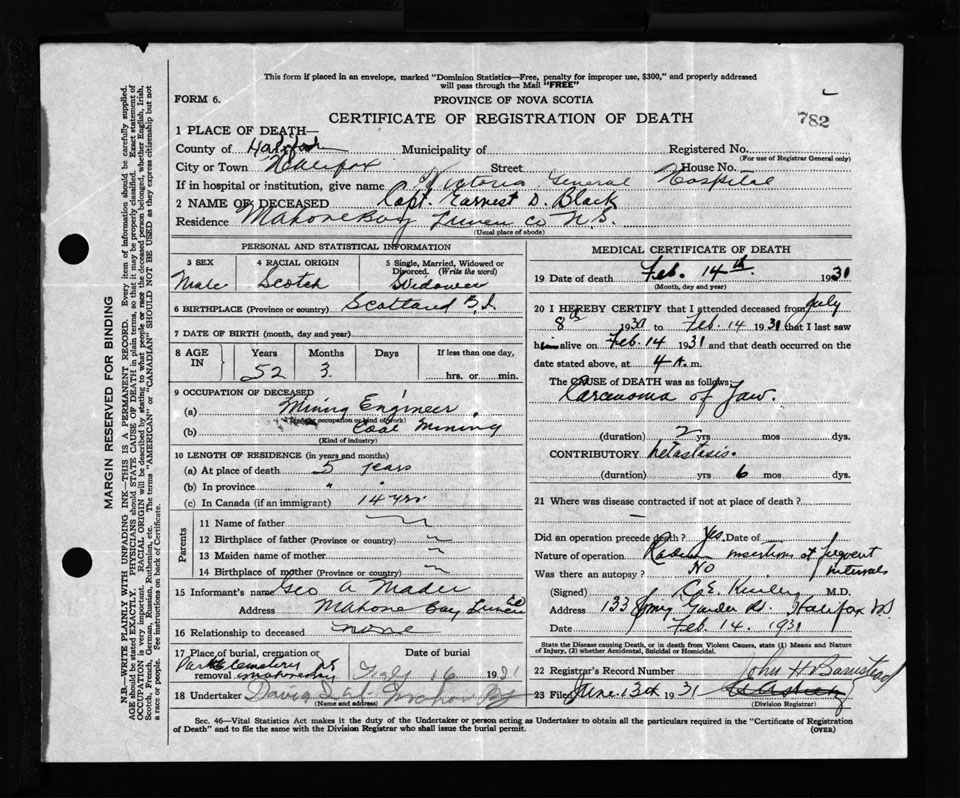 This form if placed in an envelope, marked "Dominion Statistics—Free, penalty for improper use, $300," and properly addressed
will pass through the Mail "FREE"
FORM 6.
PROVINCE OF NOVA SCOTIA
CERTIFICATE OF REGISTRATION OF DEATH
782
1 PLACE OF DEATH—
County of Halifax Municipality of Registered No.
(For use of Registrar General only)
City or Town Halifax Street House No.
If in hospital or institution, give name Victoria General Hospital
2 NAME OF DECEASED Capt. Earnest D. Black
Residence Mahone Bay Lunen Co N.S.
(Usual place of abode)
PERSONAL AND STATISTICAL INFORMATION
3 SEX 4 RACIAL ORIGIN 5 Single, Married, Widowed or
Divorced. (Write the word)
Male Scotch Widower
6 BIRTHPLACE (Province or country) Scotland B.I.
7 DATE OF BIRTH (month, day and year)
8 AGE IN Years Months Days If less than one day,
52 3 hrs. or min.
9 OCCUPATION OF DECEASED
(a) Mining Engineer
(b) Coal Mining
(Kind of industry)
10 LENGTH OF RESIDENCE (in years and months)
(a) At place of death 5 years
(b) In province " "
(c) In Canada (if an immigrant) 14 yrs.
Parents
11 Name of father
12 Birthplace of father (Province or country)
13 Maiden name of mother
14 Birthplace of mother (Province or country)
15 Informant's name Geo A Mader
Address Mahone Bay Lunen Co
16 Relationship to deceased none
17 Place of burial, cremation or
removal Park Cemetery NS
Mahone Bay
Date of burial
Feby 16 1931
18 Undertaker
(Name and address)
MEDICAL CERTIFICATE OF DEATH
19 Date of death Feb. 14th. 1931
(Month, day and year)
20 I HEREBY CERTIFY that I attended deceased from July
8th 1930 to Feb. 14 1931 that I last saw
him alive on Feb. 14 1931 and that death occurred on the
date stated above, at 4 A. m.
The CAUSE OF DEATH was as follows:
Carcinoma of Jaw.
(duration) 2 yrs mos dys.
CONTRIBUTORY Metastasis.
(duration) yrs 6 mos dys.
21 Where was disease contracted if not at place of death?
—
Did an operation precede death? Yes. Date of
Nature of operation Radium insertions at frequent
intervals
Was there an autopsy? No
(Signed) C. E. M.D.
Address 133 Spring Garden Rd. Halifax NS
Date Feb. 14. 1931
State the Disease causing Death, or in death from Violent Causes, state (1) Means and Nature of
Injury, (2) whether Accidental, Suicidal or Homicidal.
22 Registrar's Record Number
23 Filed June 13th 31 John H Barnstead
(Division Registrar)
Sec. 46—Vital Statistics Act makes it the duty of the Undertaker or person acting as Undertaker to obtain all the particulars required in the "Certificate of Registration
of Death" and to file the same with the Division Registrar who shall issue the burial permit.
(OVER)
MARGIN RESERVED FOR BINDING
N.B.—WRITE PLAINLY WITH UNFADING INK—THIS IS A PERMANENT RECORD. Every item of information should be carefully supplied.
AGE should be stated EXACTLY. PHYSICIANS should STATE CAUSE OF DEATH in plain terms, so that it may be properly classified. Exact statement of
OCCUPATION is very important. RACIAL ORIGIN will be described by stating to what people or race the deceased person belonged, whether English, Irish,
Scotch, French, German, Russian, Ruthenian, etc. The terms "AMERICAN" or "CANADIAN" SHOULD NOT BE USED as they express citizenship but not
a race or people. See instructions on back of Certificate.